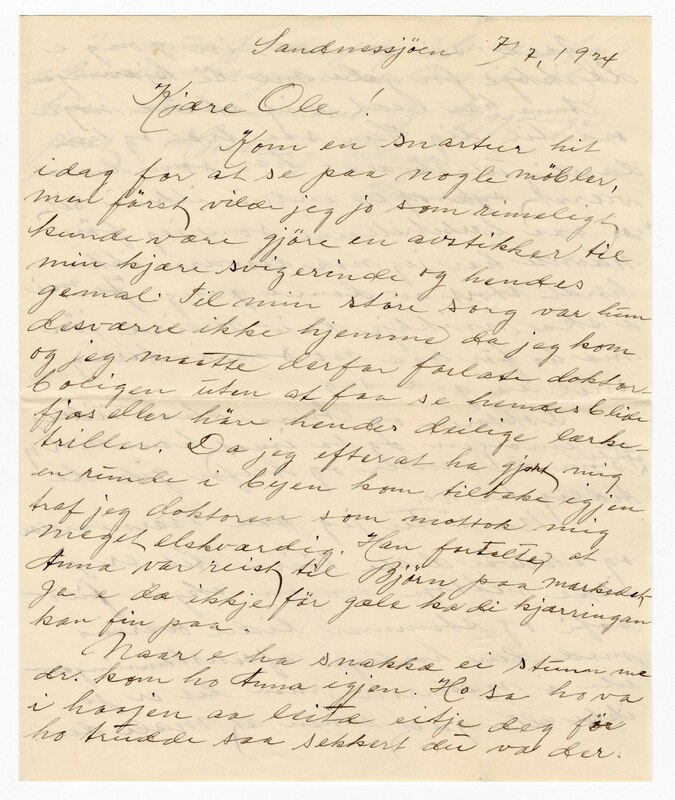 Sandnessjöen 7/7, 1924
Kjære Ole!
Kom en snartur hit
idag for at se paa nogle möbler,
men först vilde jeg jo som rimeligt
kunde være gjöre en avstikker til
min kjære svigerinde og hendes
gemal. Til min store sorg var hun
desværre ikke hjemme da jeg kom
og jeg maatte derfor forlate doktor-
boligen uten at faa se hendes blide
fjæs eller höre hendes deilige lærke-
triller. Da jeg efter at ha gjort mig
en runde i byen kom tilbake igjen
traf jeg doktoren som mottok mig
meget elskværdig. Han fortalte at
Anna var reist til Björn paa markedet
Ja e da ikkje för gæle ka di kjærringan
kan fin paa.
Naar e ha snakka ei stunn me
dr. kom ho Anna igjen. Ho sa ho va
i haajen aa leita eitje deg för
ho trudde saa sekkert du va der.